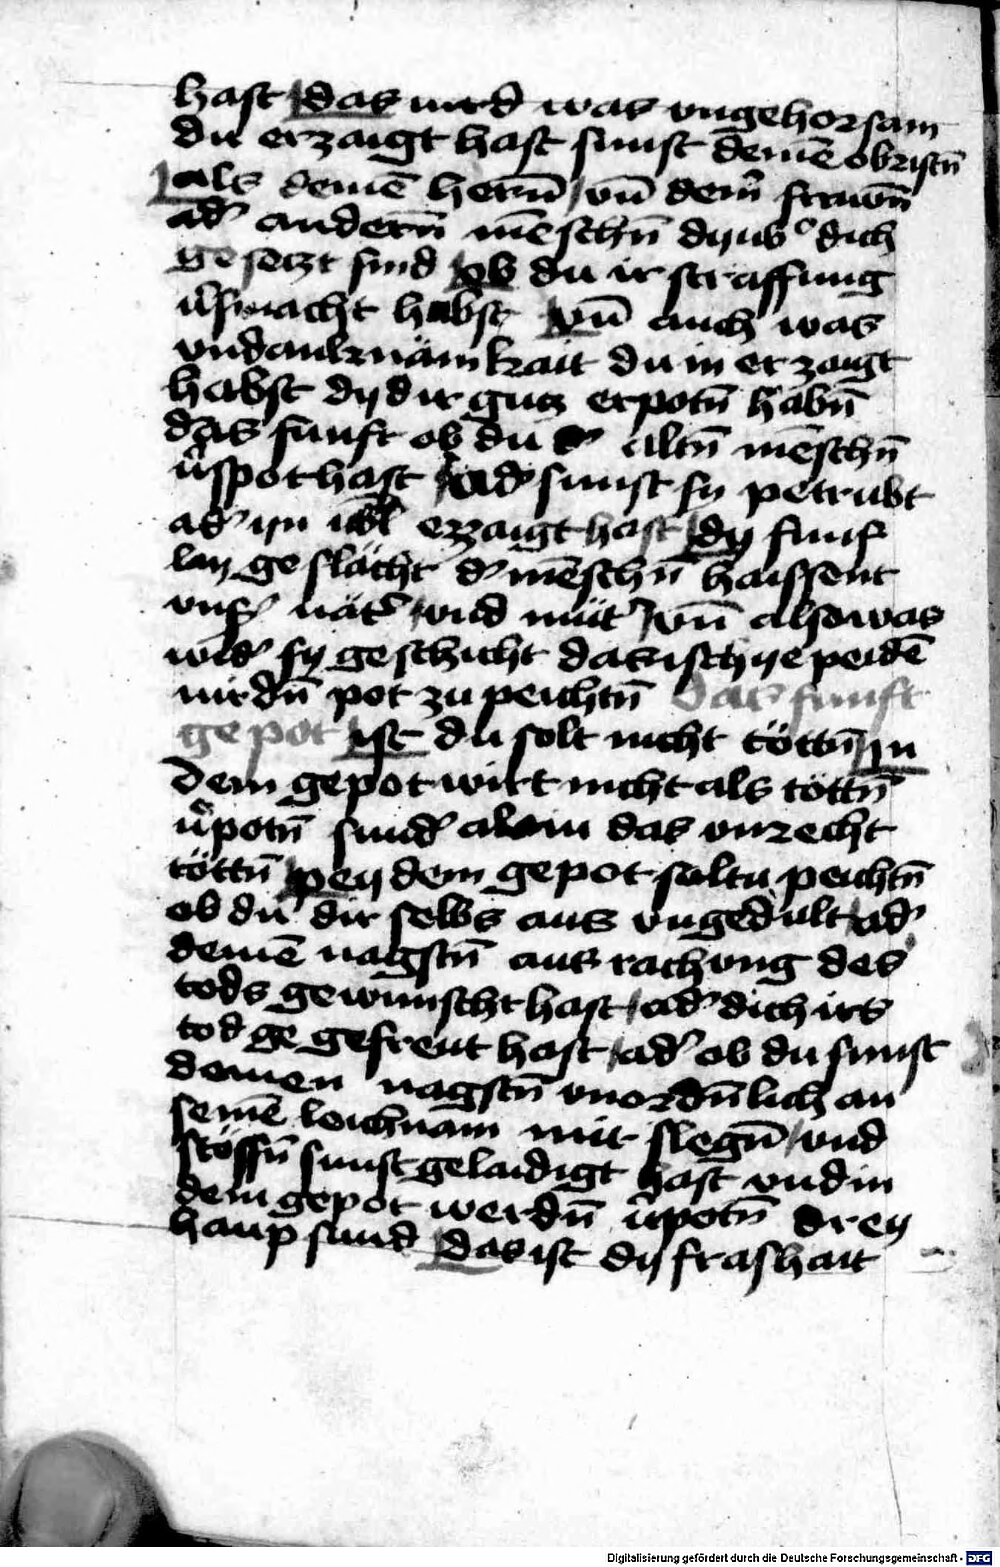 hast das mird was vngehorsam
du erzaigt hast sunst deinē obristn̄
als deinē herrn̄ vn̄ dein̄ frawn̄
ad' andern̄ mēschn̄ dy vb' dich
gesetzt sind ob du ir straffung
v̓smacht habst vn̄ auch was
vndanknämkait du in erzaigt
habst dy dir gutz erpotn̄ habn̄
das funft ob du d' altn̄ mēschn̄
v̓spot hast ad' sunst sy petrubt
ad' yn übl erzaigt hast dy funf
lay geslächt d' mēschn̄ haissent
vns' vät' vnd müt' vn̄ also was
wid' sy geschicht das ist ye peidē
nirdn̄ pot zu peichtn̄ das funft
gepot ist du solt nicht töttn̄ in
dem gepot wirt nicht als töttn̄
v̓potn̄ sund' alain das vnrecht
töttn̄ pey dem gepot saltu peichtn̄
ob du dir selbs aus vngedult ad'
deinē nagstn̄ aus rachung des
tods gewunscht hast ad' dich irs
tod ge gefreut hast ad' ob du sunst
deinen nagstn̄ vnordn̄lich an
seinē leichnam mit slegn̄ vnd
stössn̄ sunst gelaidigt hast vnd in
dem gepot werdn̄ v̓potn̄ drey
haup sund das ist dy frashait
Digitalisierung gefördert durch die Deutsche Forschungsgemeinschaft - DFG